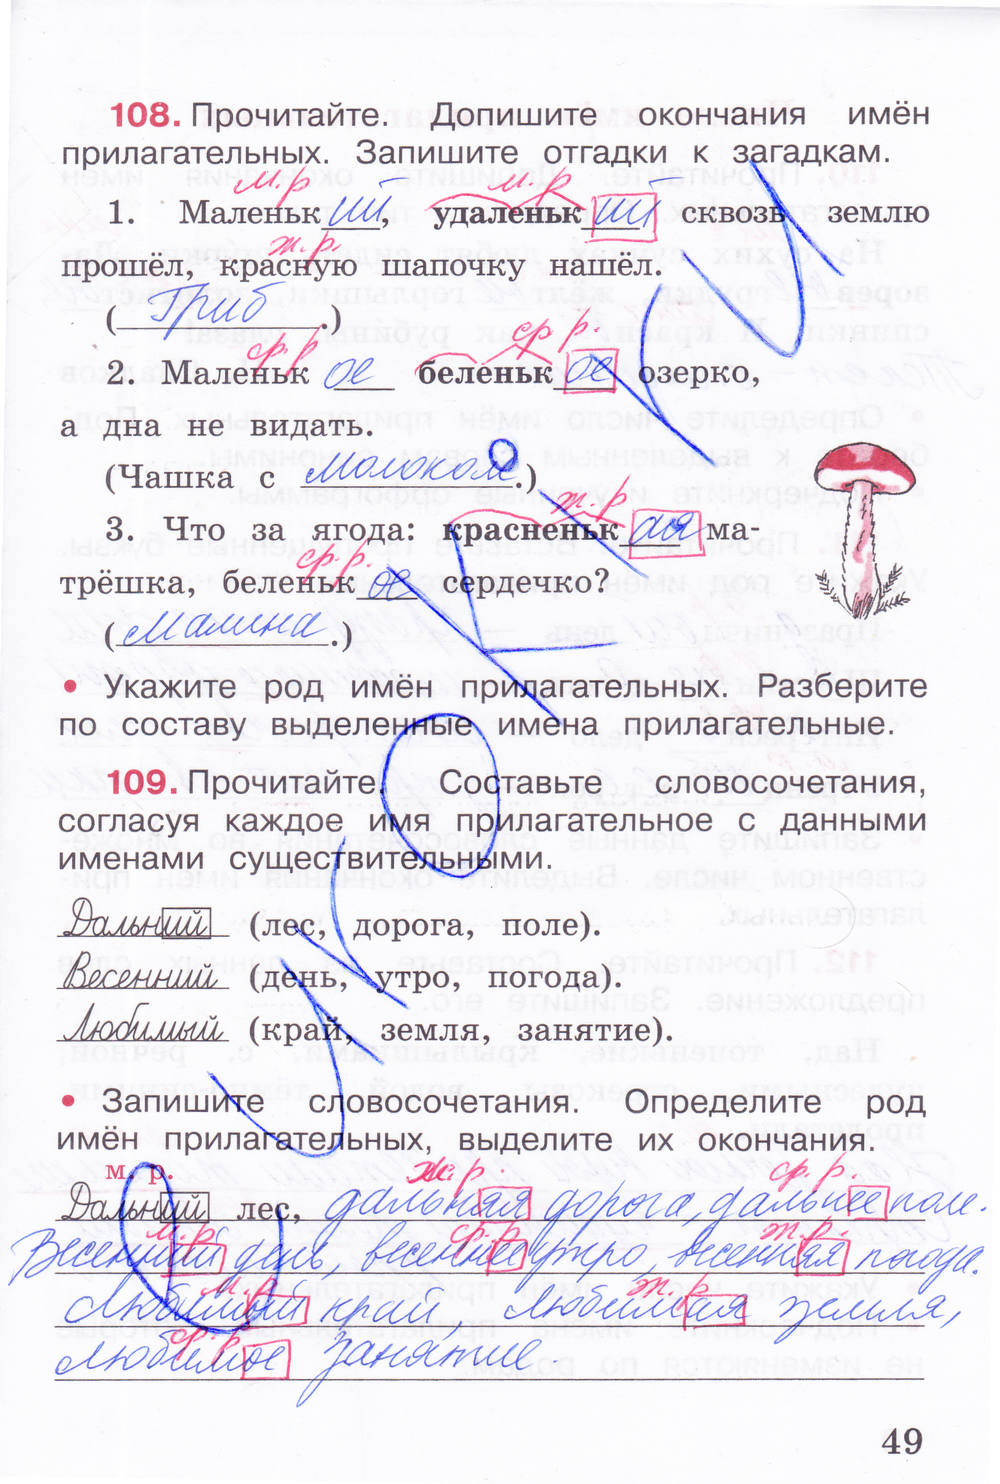 108. Прочитайте. Допишите окончания имён
прилагательных. Запишите отгадки к загадкам.
м.р м.р
1. Маленький, удаленький сквозь землю
ж.р.
прошёл, красную шапочку нашёл.
(Гриб.)
ср.р ср р.
2. Маленькое беленькое озерко,
а дна не видать.
(Чашка с молоком.)
ж.р
3. Что за ягода: красненькая ма-
ср.р.
трёшка, беленькое сердечко?
(малина.)
• Укажите род имён прилагательных. Разберите
по составу выделенные имена прилагательные.
109. Прочитайте. Составьте словосочетания,
согласуя каждое имя прилагательное с данными
именами существительными.
Дальний (лес, дорога, поле).
Весенний (день, утро, погода).
Любимый (край, земля, занятие).
• Запишите словосочетания. Определите род
имён прилагательных, выделите их окончания.
м. р. ж.р. ср.р.
Дальний лес, дальняя дорога, дальнее поле.
м.р ср.р. ж.р.
Весенний день весеннее утро, весенняя погода.
м.р ж.р
Любимый край любимая земля,
ср.р
любимое занятие.
49